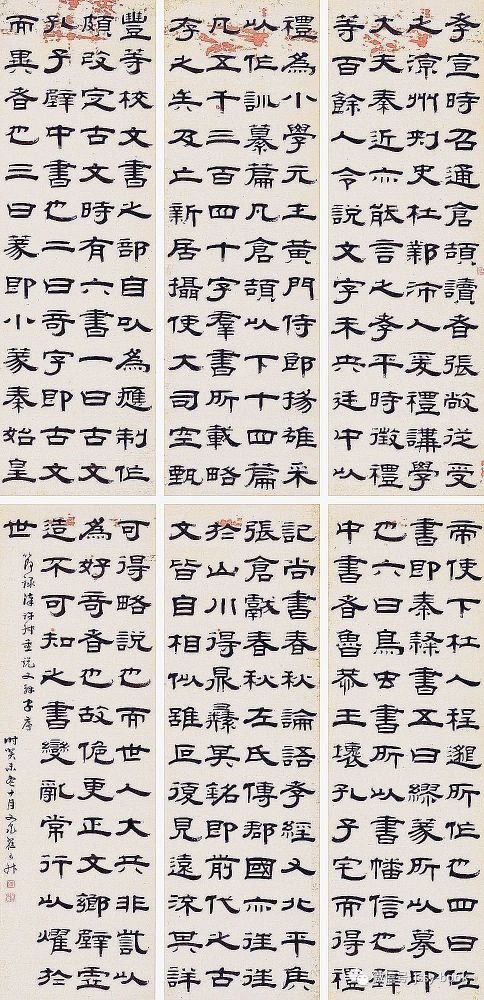 孝宣時召通倉頡讀者張敞從受
之涼州刺史杜鄴沛人爰禮講學
大夫秦近亦能言之孝平時徵禮
等百餘人令說文字未央廷中以
禮為小學元士黃門侍郎揚雄采
以作訓纂篇凡倉頡以下十四篇
凡五千三百四十字羣書所載略
存之矣及亡新居攝使大司空甄
豐等校文書之部自以為應制作
頗改定古文時有六書一曰古文
孔子壁中書也二曰奇字即古文
而異者也三曰篆即小篆秦始皇
帝使下杜人程邈所作也四曰佐
書即秦隸書五曰繆篆所以摹印
也六曰鳥虫書所以書幡信也壁
中書者魯恭王壞孔子宅而得禮
記尚書春秋論語孝經又北平侯
張倉獻春秋左氏傳郡國亦往往
於山川得鼎彝其銘即前代之古
文皆自相似雖叵復見遠流其詳
可得略說也而世人大共非訾以
為好奇者也故詭更正文鄉壁虛
造不可知之書變亂常行以燿於
世
節錄漢許叔重說文解字序
時癸未冬十月